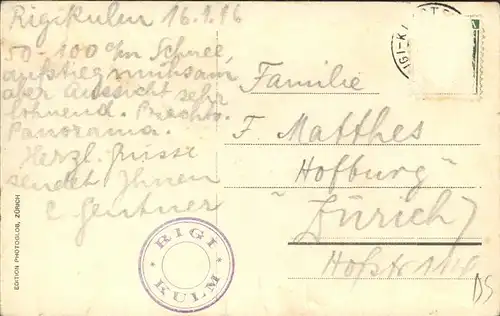 Rigikulm 16.1.16
50-100 c/m Schnee,
aufstieg mühsam
aber Aussicht sehr
lohnend. Prachtv.
Panorama.
Herzl. Grüsse
sendet Ihnen
C. Gentner
Familie
F. Matthes
"Hofburg"
Zürich 7
Hofstr
RIGI
KULM
EDITION PHOTOGLOB, ZÜRICH
DS